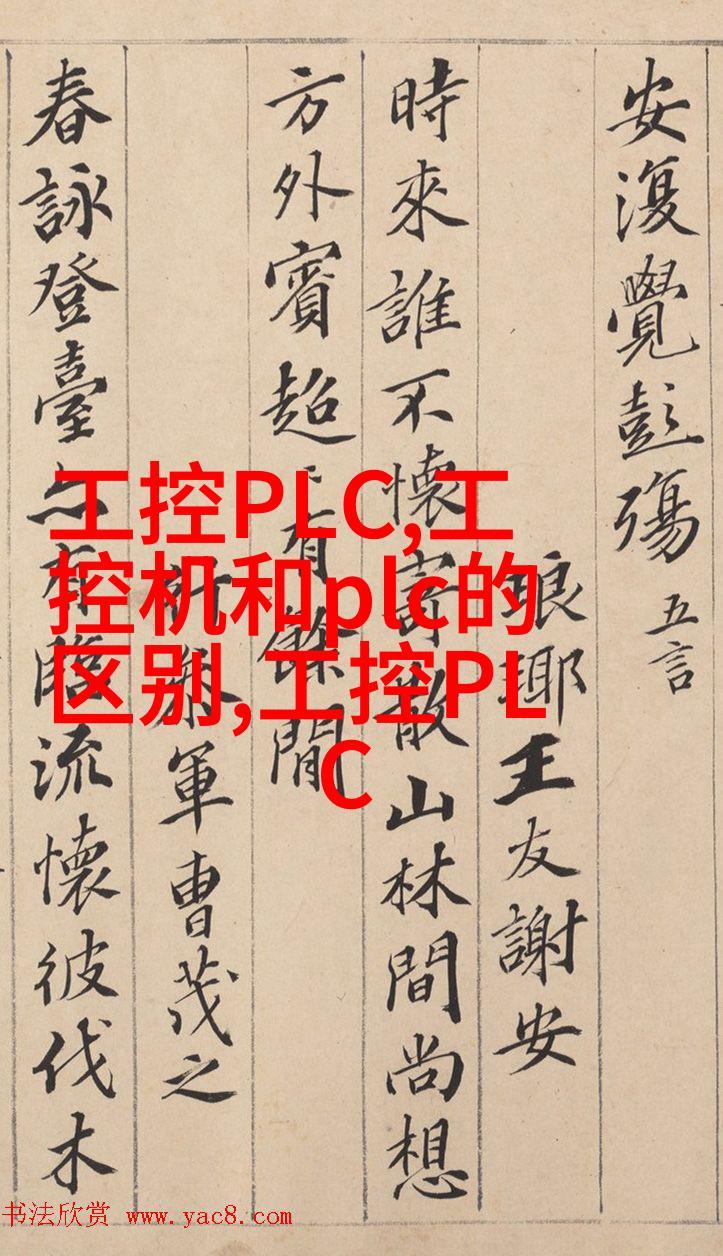 安復覺彭殤 五言
琅琊王友謝安
時來誰不懷寄散山林間尚想
方外賓超〻有餘閒
行參軍曹茂之
春詠登臺亦有臨流懷彼伐木
工控PLC,工
控机和plc的
区别,工控PL
C
书法欣赏 www.yac8.com